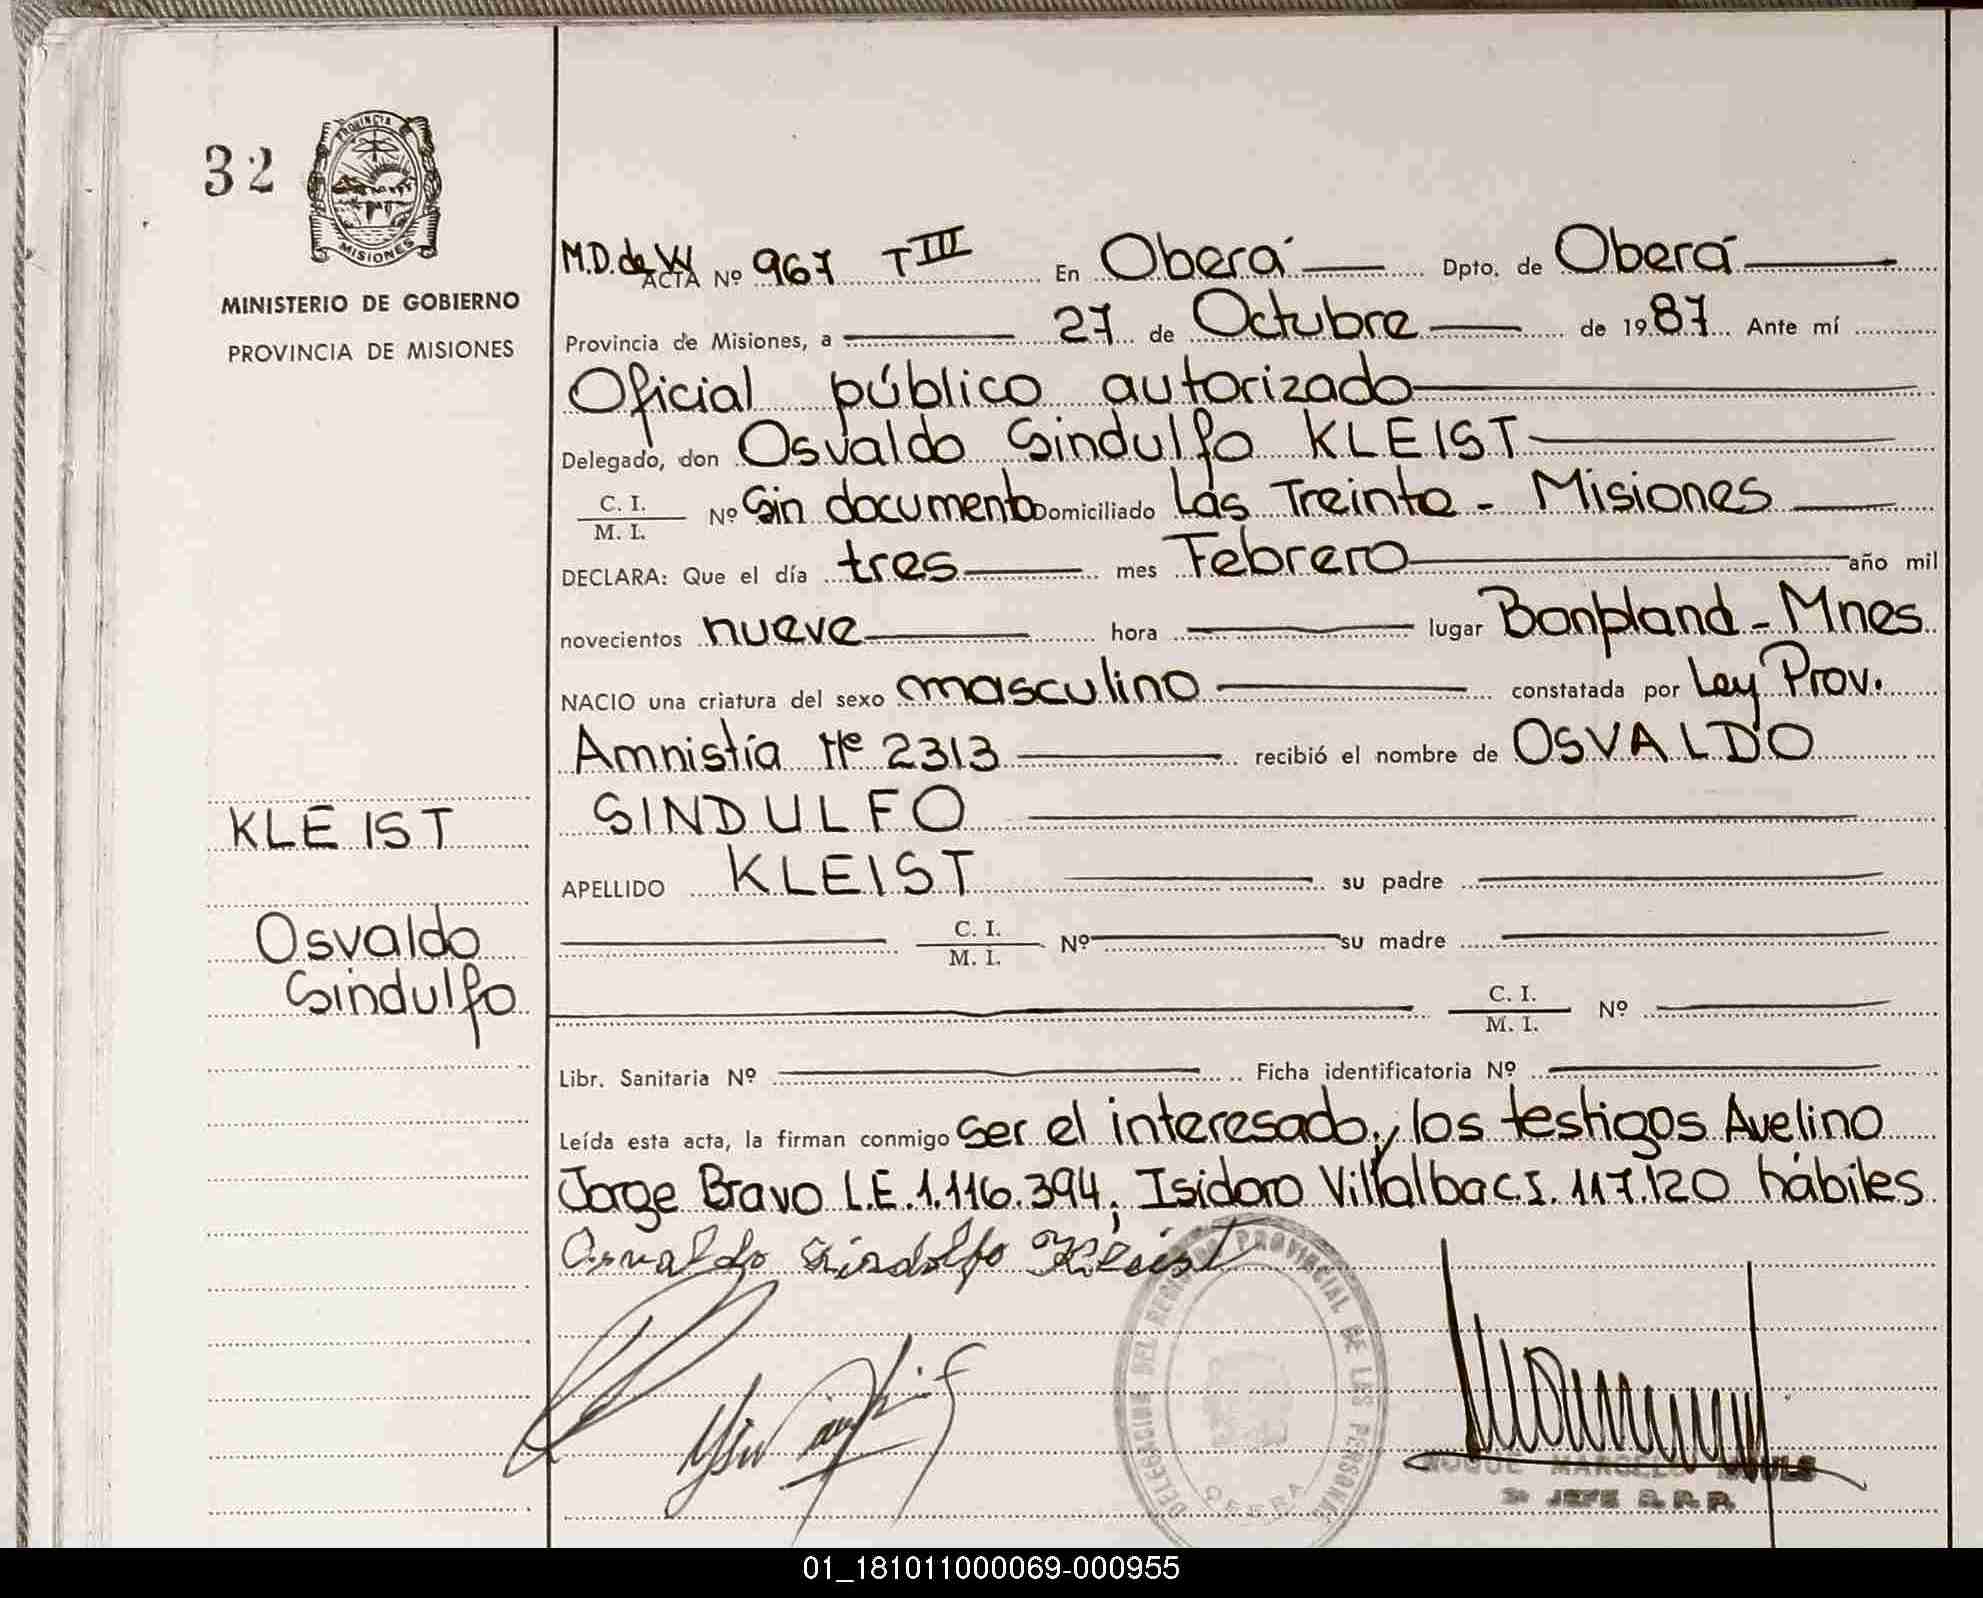 32
PROVINCIA
MISIONES
MINISTERIO DE GOBIERNO
PROVINCIA DE MISIONES
KLEIST
Osvaldo
Sindulfo
M.D. de W ACTA Nº 967 T III En Oberá Dpto. de Oberá
Provincia de Misiones, a 27 de Octubre de 1987 Ante mí
Oficial público autorizado
Delegado, don Osvaldo Sindulfo KLEIST
C. I.
M. I. Nº Sin documento Domiciliado Las Treinta - Misiones
DECLARA: Que el día tres mes Febrero año mil
novecientos nueve hora lugar Bonpland - Mnes
NACIO una criatura del sexo masculino constatada por Ley Prov.
Amnistía Nº 2313 recibió el nombre de OSVALDO
SINDULFO
APELLIDO KLEIST su padre
C. I.
M. I. Nº su madre
C. I.
M. I. Nº
Libr. Sanitaria Nº Ficha identificatoria Nº
Leída esta acta, la firman conmigo ser el interesado y los testigos Avelino
Jorge Bravo L.E. 1.116.394, Isidoro Villalba C.I. 117.120 hábiles
Osvaldo Sindolfo Kleist
DELEGACION DEL REGISTRO PROVINCIAL DE LAS PERSONAS
OBERA
ROQUE MARCELO
JEFE R.P.P.
01_181011000069-000955